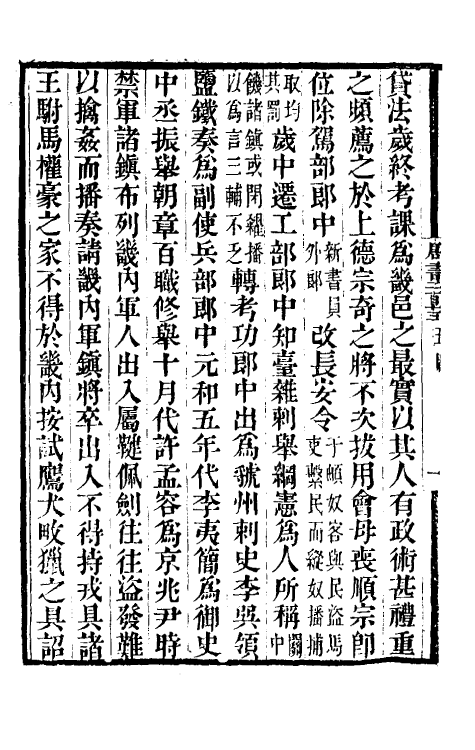 貸法歲終考課爲畿邑之最實以其人有政術甚禮重
之頻薦之於上德宗奇之將不次拔用會母喪順宗卽
位除駕部郎中新書員外郎改長安令于頔奴客與民盜馬吏繫民而縱奴播捕
取均其罰歲中遷工部郎中知臺雜刺舉綱憲爲人所稱關中
饑諸鎭或閉糴播以爲言三輔不乏轉考功郎中出爲虢州刺史李吳領
鹽鐵奏爲副使兵部郎中元和五年代李夷簡爲御史
中丞振舉朝章百職修舉十月代許孟容爲京兆尹時
禁軍諸鎭布列畿內軍人出入屬鞬佩劍往往盜發難
以擒姦而播奏請畿內軍鎭將卒出入不得持戎具諸
王駙馬權豪之家不得於畿內按試鷹犬畋獵之具詔